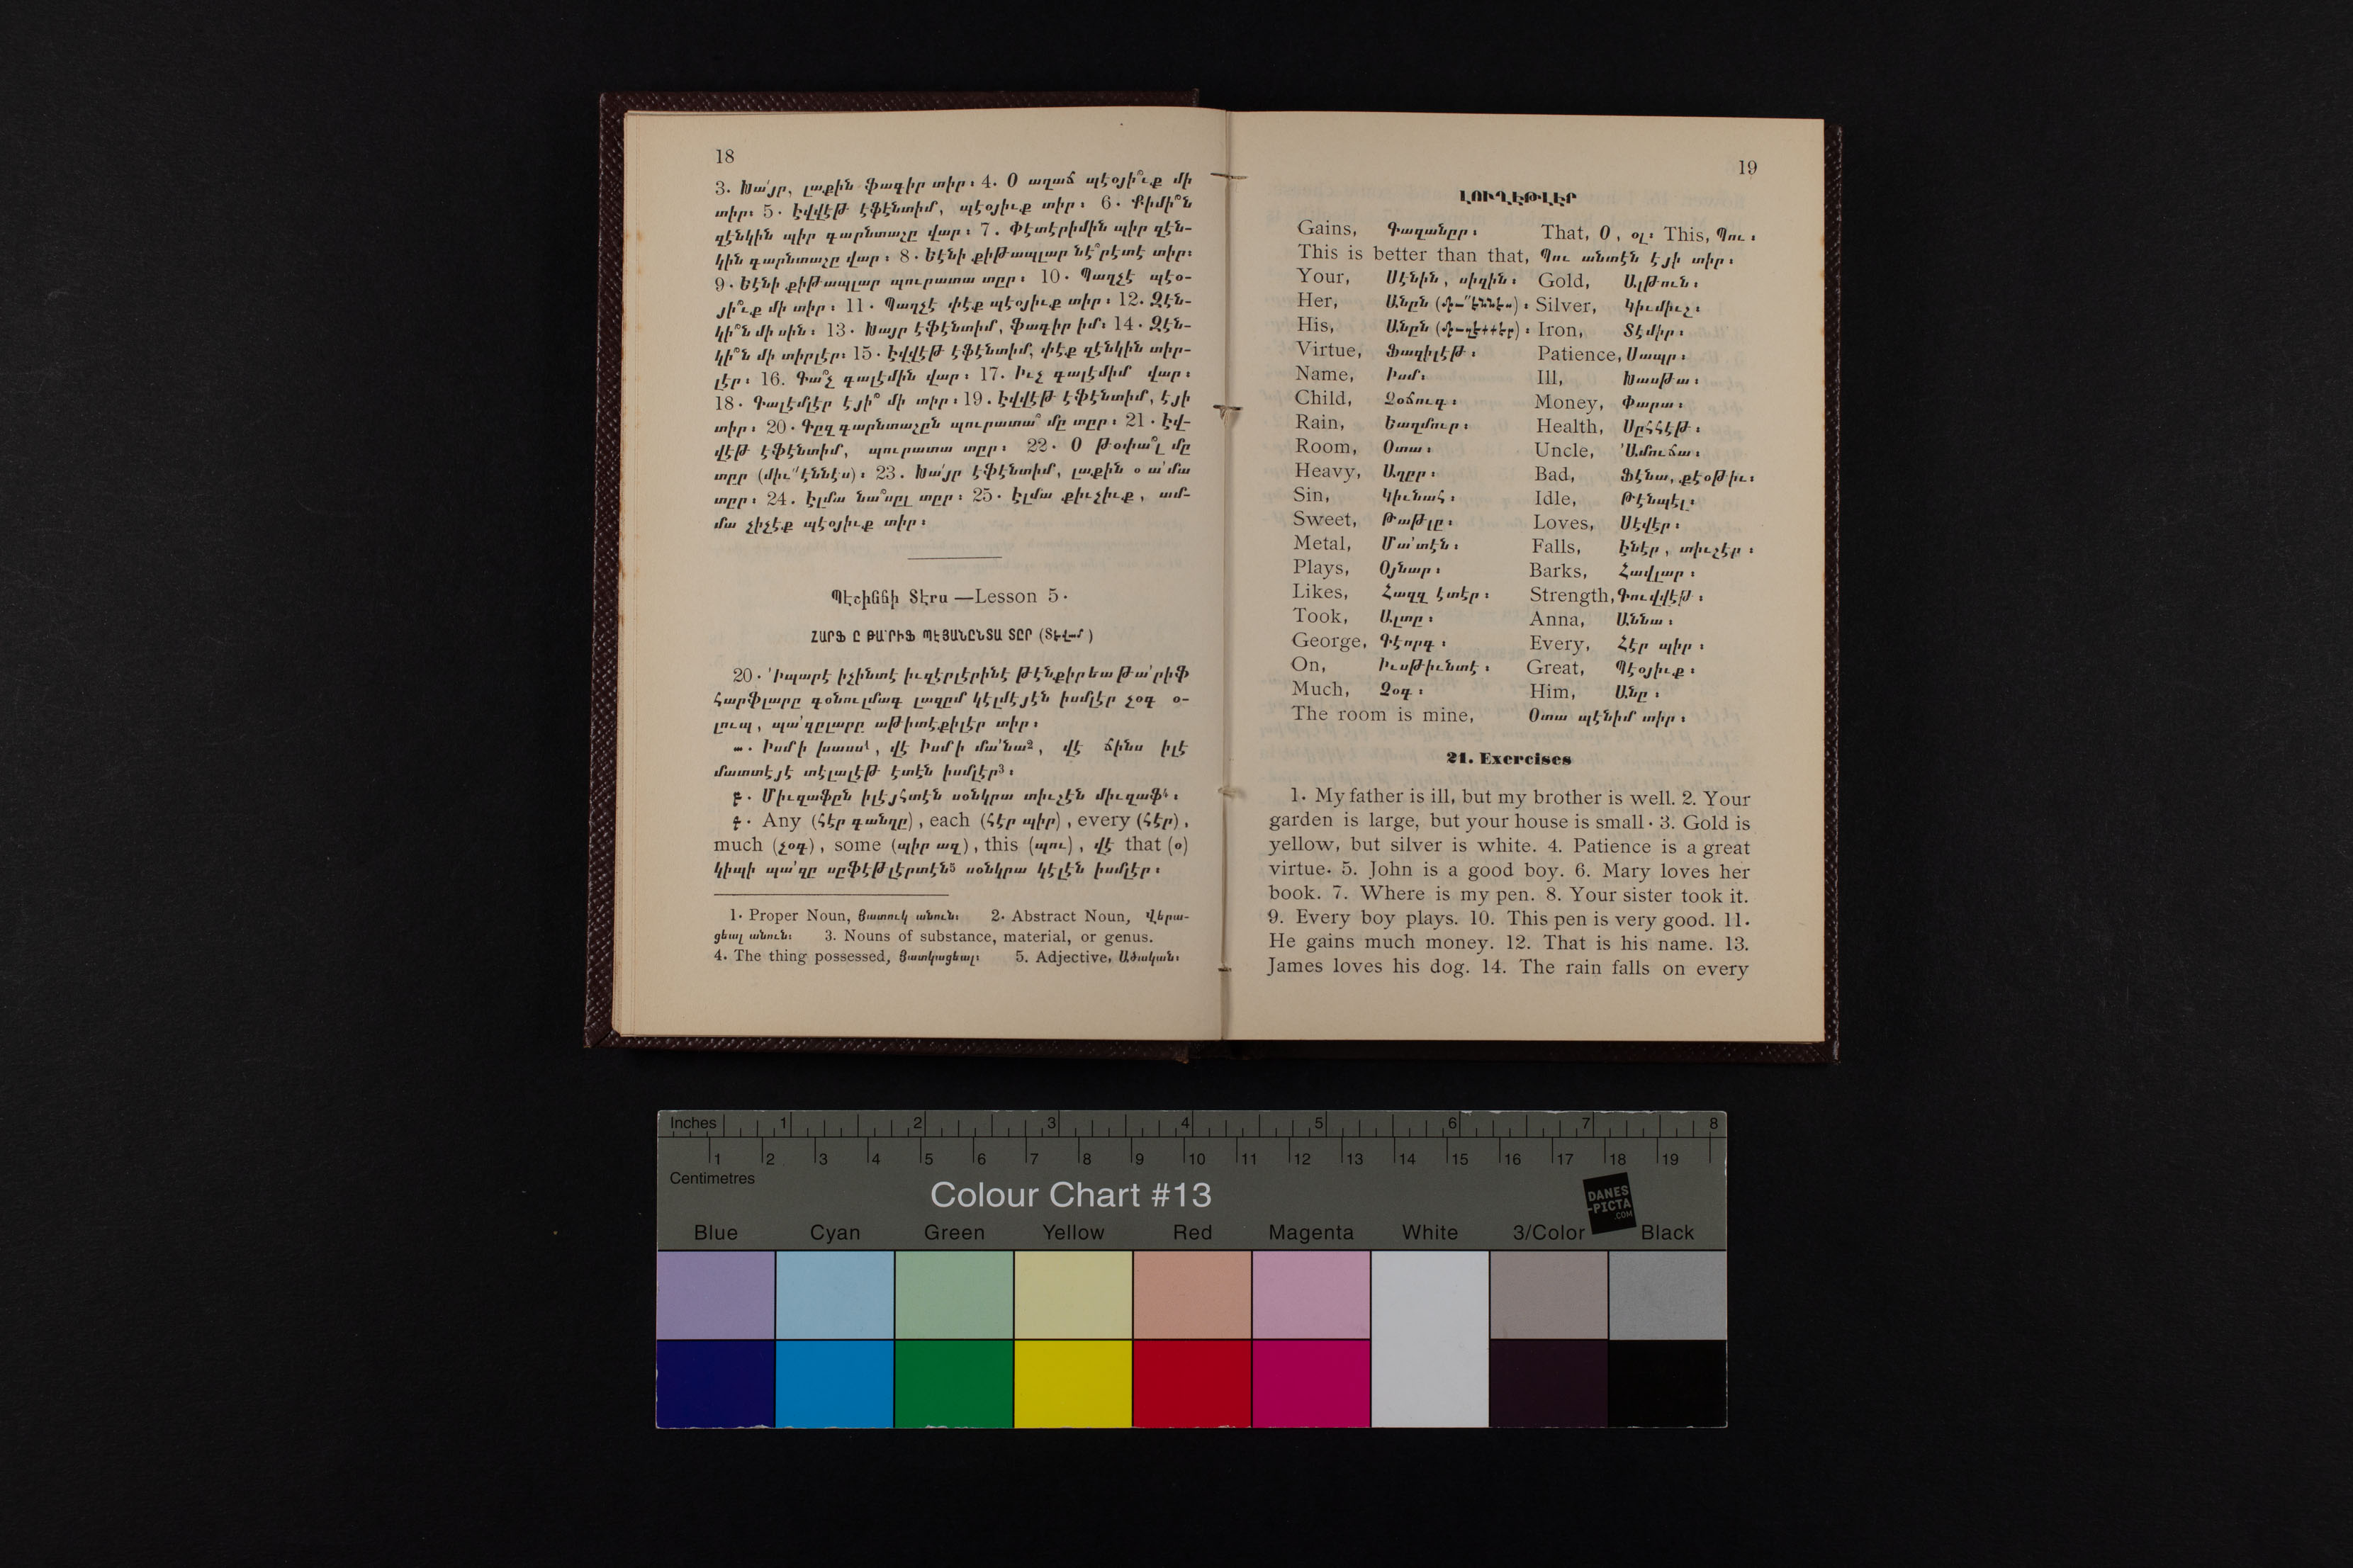 18
3. Խա՛յր, լաքին ֆագիր տիր։ 4. Օ աղաճ պէօյի՞ւք մի
տիր։ 5. Էվվէթ էֆէնտիմ, պէօյիւք տիր։ 6. Քիմի՞ն
զէնկին պիր գարնտաշը վար։ 7. Փէտէրիմին պիր զէն-
կին գարնտաշը վար։ 8. Եէնի քիթապլար նէ՞րէտէ տիր։
9. Եէնի քիթապլար պուրատա տըր։ 10. Պաղչէ պէօ-
յի՞ւք մի տիր։ 11. Պաղչէ փէք պէօյիւք տիր։ 12. Զէն-
կի՞ն մի սին։ 13. Խայր էֆէնտիմ, ֆագիր իմ։ 14. Զէն-
կի՞ն մի տիրլէր։ 15. Էվվէթ էֆէնտիմ, փէք զէնկին տիր-
լէր։ 16. Գա՞չ գալէմին վար։ 17. Իւչ գալէմիմ վար։
18. Գալէմլէր էյի՞ մի տիր։ 19. Էվվէթ էֆէնտիմ, էյի
տիր։ 20. Գըզ գարնտաշըն պուրատա՞ մը տըր։ 21. Էվ-
վէթ էֆէնտիմ, պուրատա տըր։ 22. Օ թօփա՞լ մը
տըր (միւ՚՚էննէս)։ 23. Խա՛յր էֆէնտիմ, լաքին օ ա՛մա
տըր։ 24. Էլմա նա՞սըլ տըր։ 25. Էլմա քիւչիւք, ամ-
մա չիչէք պէօյիւք տիր։
Պէշինճի Տէրս —Lesson 5.
ՀԱՐՖ Ը ԹԱ՛ՐԻՖ ՊԷՅԱՆԸՆՏԱ ՏԸՐ (Տեվամ)
20. ՛Իպարէ իչինտէ իւզէրլէրինէ թէնքիր եա թա՛րիֆ
հարֆլարը գօնուլմագ լազըմ կէլմէյէն իսմլէր չօգ օ-
լուպ, պա՛զըլարը աթիտէքիլէր տիր։
ա. Իսմի խասս1, վէ Իսմի մա՛նա2, վէ ճինս իլէ
մատտէյէ տէլալէթ էտէն իսմլէր3։
բ. Միւզաֆըն իլէյհտէն սօնկրա տիւշէն միւզաֆ4։
գ. Any (հէր գանղը), each (հէր պիր), every (հէր),
much (չօգ), some (պիր ազ), this (պու), վէ that (օ)
կիպի պա՛զը սըֆէթլէրտէն5 սօնկրա կէլէն իսմլէր։
1. Proper Noun, Յատուկ անուն։ 2. Abstract Noun, Վերա-
ցեալ անուն։ 3. Nouns of substance, material, or genus.
4. The thing possessed, Յատկացեալ։ 5. Adjective, Ածական։
19
ԼՈՒՂԷԹԼԷՐ
Gains, Գազանըր։ That, Օ, օլ։ This, Պու։
This is better than that, Պու անտէն էյի տիր։
Your, Սէնին, սիզին։ Gold, Ալթուն։
Her, Անըն (միւ՚՚էննէս)։ Silver, Կիւմիւշ։
His, Անըն (միւզէքքէր)։ Iron, Տէմիր։
Virtue, Ֆազիլէթ։ Patience, Սապր։
Name, Իսմ։ Ill, Խասթա։
Child, Չօճուգ։ Money, Փարա։
Rain, Եաղմուր։ Health, Սըհհէթ։
Room, Օտա։ Uncle, ՛Ամուճա։
Heavy, Աղըր։ Bad, Ֆէնա, քէօթիւ։
Sin, Կիւնահ։ Idle, Թէնպէլ։
Sweet, Թաթլը։ Loves, Սէվէր։
Metal, Մա՛տէն։ Falls, Էնէր, տիւշէր։
Plays, Օյնար։ Barks, Հավլար։
Likes, Հազզ էտէր։ Strength, Գուվվէթ։
Took, Ալտը։ Anna, Աննա։
George, Գէորգ։ Every, Հէր պիր։
On, Իւսթիւնտէ։ Great, Պէօյիւք։
Much, Չօգ։ Him, Անը։
The room is mine, Օտա պէնիմ տիր։
21. Exercises
1. My father is ill, but my brother is well. 2. Your
garden is large, but your house is small. 3. Gold is
yellow, but silver is white. 4. Patience is a great
virtue. 5. John is a good boy. 6. Mary loves her
book. 7. Where is my pen. 8. Your sister took it.
9. Every boy plays. 10. This pen is very good. 11.
He gains much money. 12. That is his name. 13.
James loves his dog. 14. The rain falls on every
Inches 1 2 3 4 5 6 7 8
1 2 3 4 5 6 7 8 9 10 11 12 13 14 15 16 17 18 19
Centimetres
Colour Chart #13
DANES
-PICTA
.COM
Blue Cyan Green Yellow Red Magenta White 3/Color Black